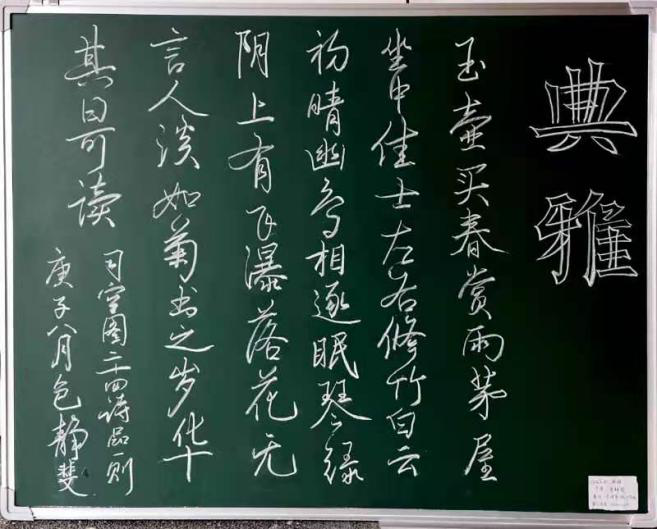 典雅
玉壶买春赏雨茅屋
坐中佳士左右修竹白云
初晴幽鸟相逐眠琴绿
阴上有飞瀑落花无
言人淡如菊书之岁华
其曰可读
司空图二十四诗品一则
庚子八月包静斐